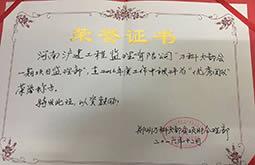 荣誉证书
河南沪建工程监理有限公司"万科大都会
一期项目监理部",在2016年度工作中被评为"优秀团队"
荣誉称号。
特发此证,以资鼓励。
郑州万科大都会项目管理部
二〇一六年十二月